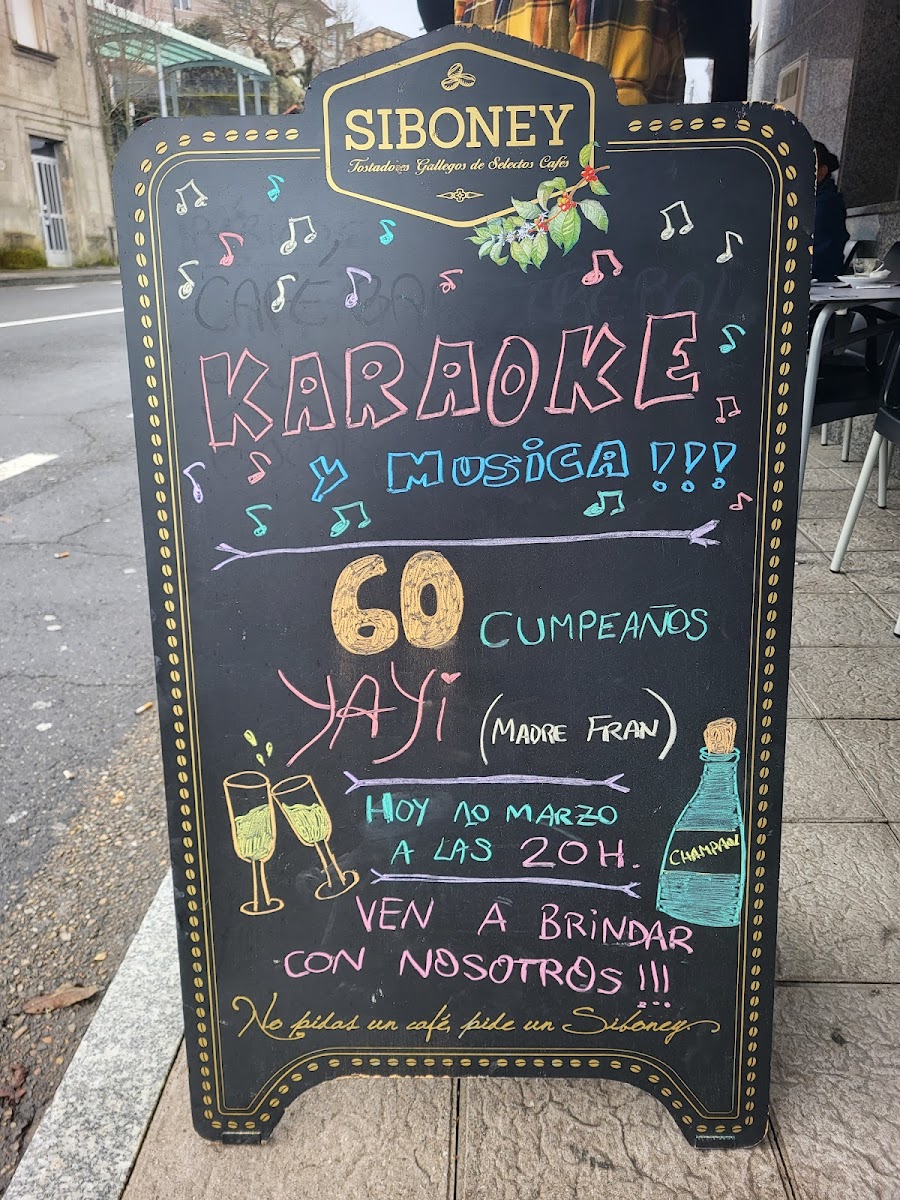 SIBONEY
Tostadores Gallegos de Selectos Cafés
CAFÉ BAR
KARAOKE
Y MUSICA !!!
60 CUMPEAÑOS
YAYi (MADRE FRAN)
HOY 10 MARZO
A LAS 20H.
CHAMPAÑ
VEN A BRINDAR
CON NOSOTROS !!!
No pidas un café, pide un Siboney